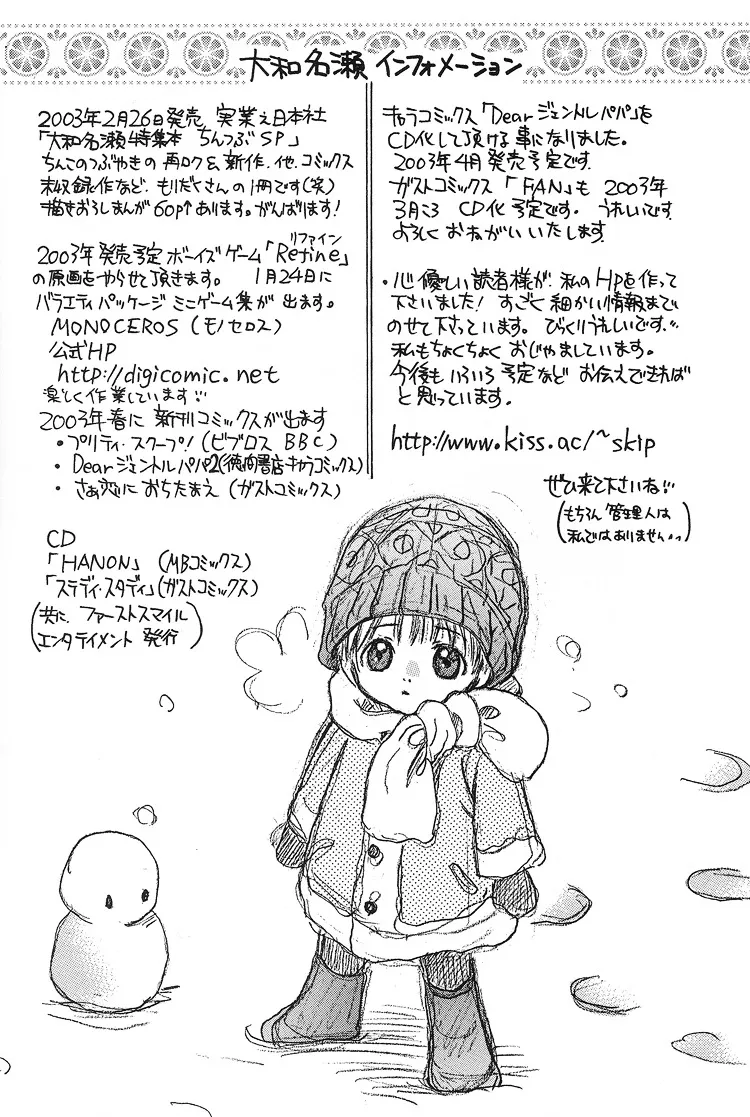 大和名瀬 インフォメーション
2003年2月26日発売 実業之日本社
「大和名瀬特集本 ちんつぶSP」
ちんこのつぶやきの再ロク&新作、他、コミックス
未収録作など、もりだくさんの1冊です(笑)
描きおろしまんが60p↑あります。がんばります!
2003年発売予定 ボーイズゲーム「Refine」
リファイン
の原画をやらせて頂きます。 1月24日に
バラエティパッケージ ミニゲーム集が出ます。
MONOCEROS (モノセロス)
公式HP
http://digicomic.net
楽しく作業しています
2003年春に 新刊コミックスが出ます
・プリティ・スクープ!(ビブロス BBC)
・Dearジェントルパパ2(徳間書店キャラコミックス)
・さあ恋におちたまえ (ガストコミックス)
CD
「HANON」(MBコミックス)
「ステディ・スタディ」(ガストコミックス)
(共に、ファーストスマイル
エンタテイメント 発行)
キャラコミックス「Dearジェントルパパ」を
CD化して頂ける事になりました。
2003年4月発売予定です
ガストコミックス 「FAN」も 2003年
3月ころ CD化予定です。 うれしいです
よろしく おねがい いたします
・心優しい読者様が、私のHPを作って
下さいました! すごく細かい情報まで
のせて下さっています。 びっくりうれしいです
私もちょくちょく おじゃましています。
今後も いろいろ 予定など お伝えできれば
と思っています。
http://www.kiss.ac/~skip
ぜひ来て下さいね
(もちろん 管理人は
私ではありません..)